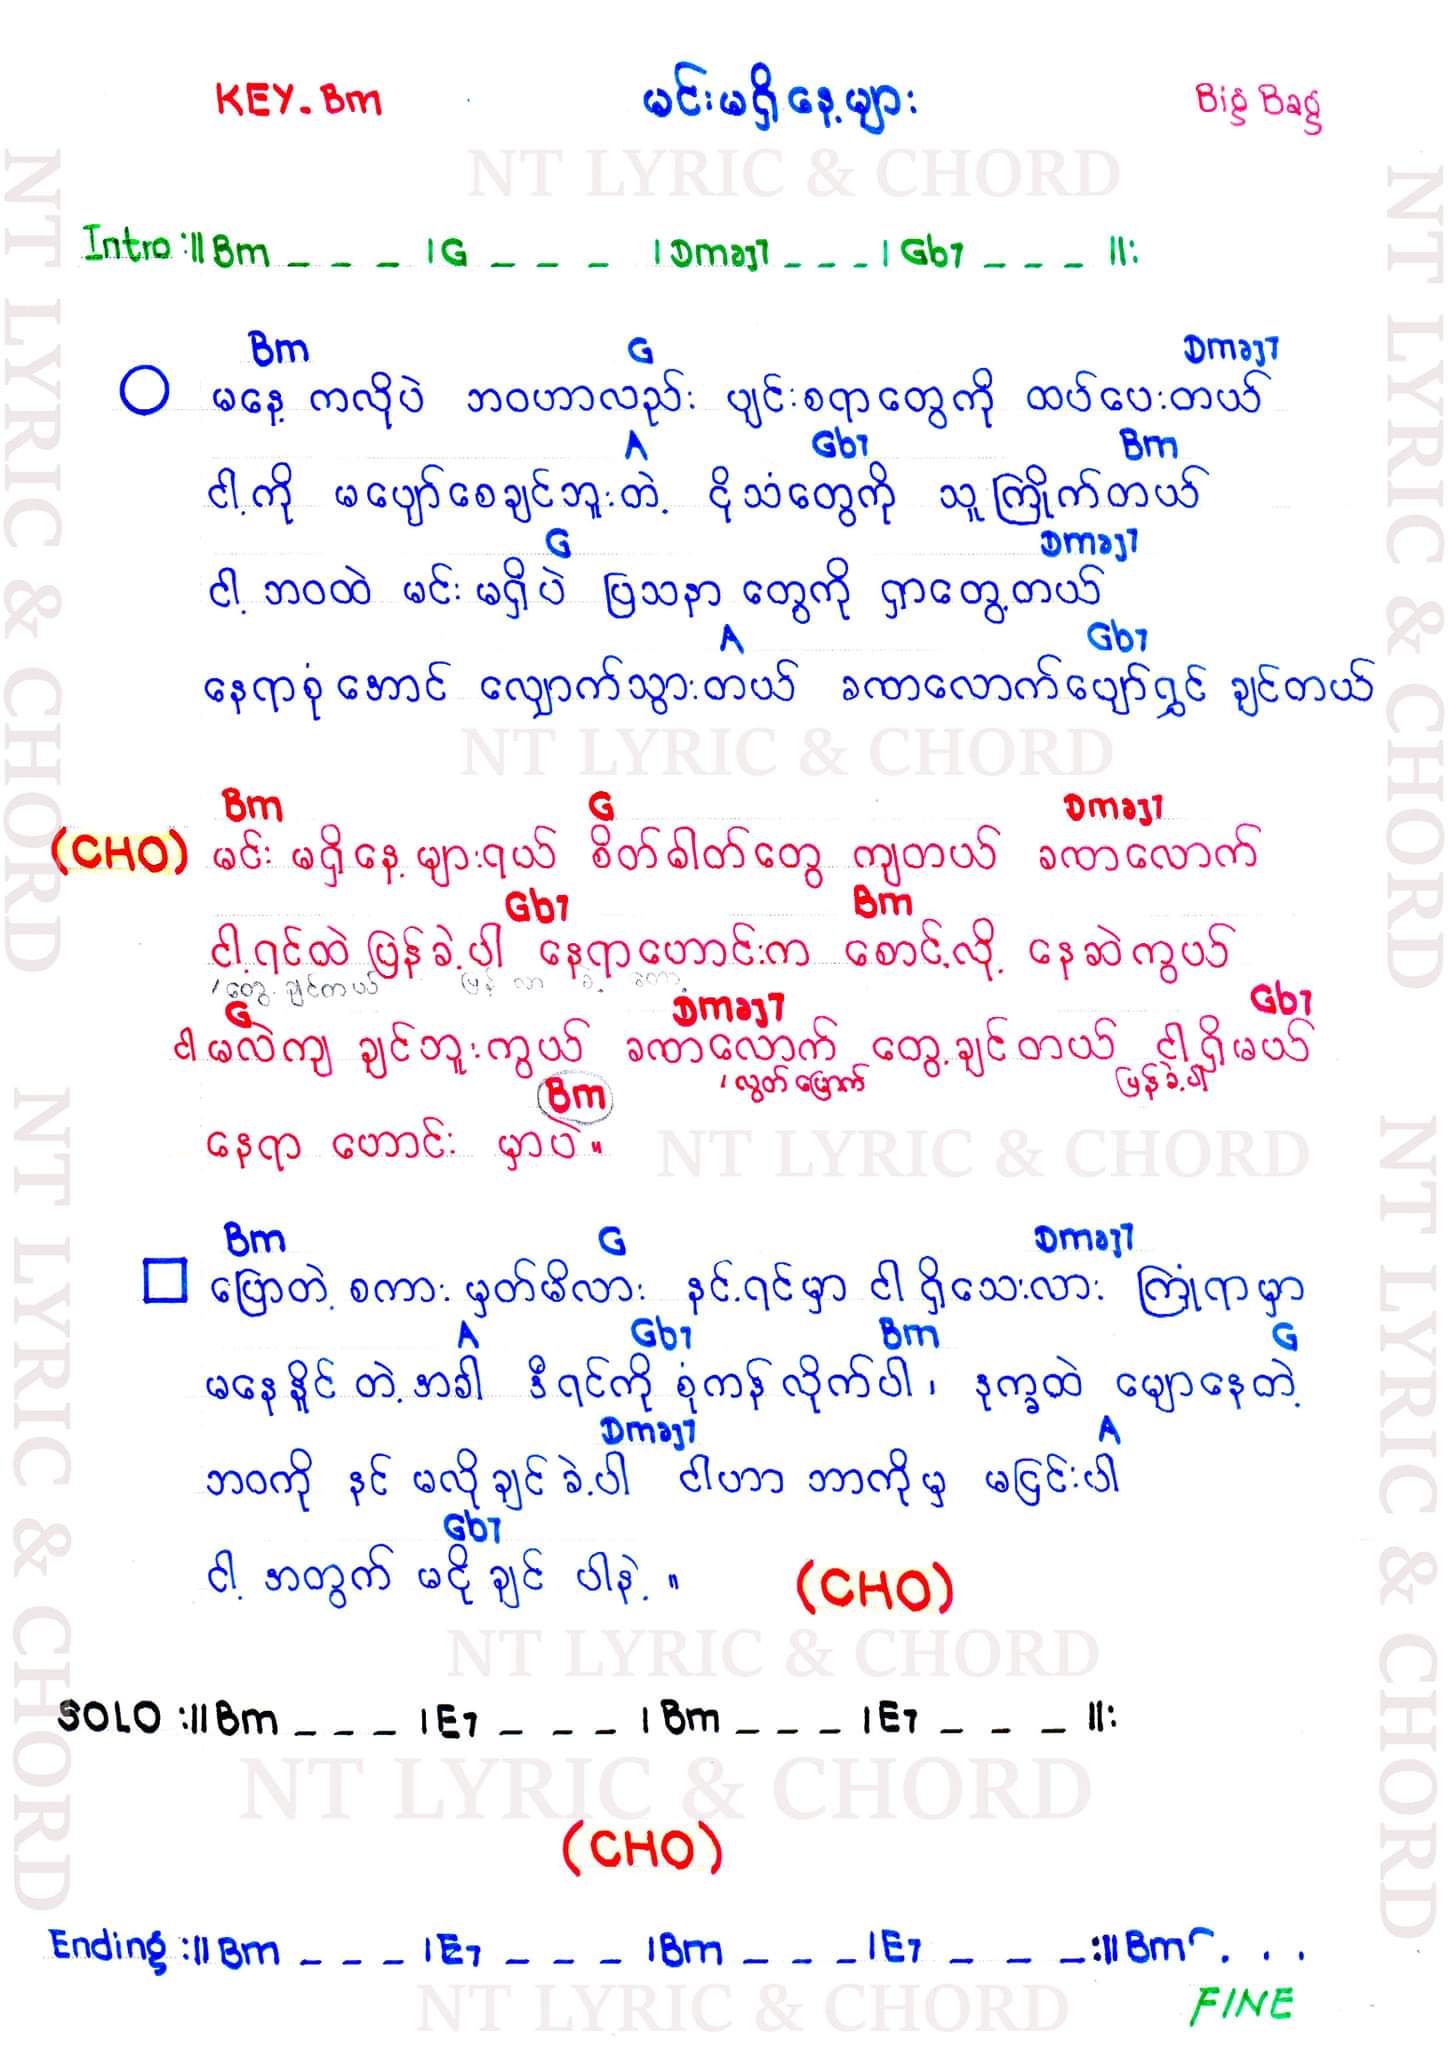 KEY-Bm မင်းမရှိနေ့များ Big Bag
NT LYRIC & CHORD
Intro :|| Bm _ _ _ | G _ _ _ | Dmaj7 _ _ _ | Gb7 _ _ _ ||:
Bm G Dmaj7
မနေ့ ကလိုပဲ ဘဝဟာလည်း ပျင်းစရာတွေကို ထပ်ပေးတယ်
A Gb7 Bm
ငါ့ကို မပျော်စေချင်ဘူးတဲ့ ငိုသံတွေကို သူကြိုက်တယ်
G Dmaj7
ငါ့ ဘဝထဲ မင်းမရှိပဲ ပြသနာ တွေကို ရှာတွေ့တယ်
A Gb7
နေရာစုံအောင် လျှောက်သွားတယ် ခဏလောက်ပျော်ရွှင် ချင်တယ်
NT LYRIC & CHORD
Bm G Dmaj7
(CHO) မင်း မရှိနေ့ များရယ် စိတ်ဓါတ်တွေ ကျတယ် ခဏလောက်
Gb7 Bm
ငါ့ရင်ထဲ ပြန်ခဲ့ပါ နေရာဟောင်းက စောင့်လို့ နေဆဲကွယ်
တွေ့ချင်တယ် ပြန် လာ ခဲ့
G Dmaj7 Gb7
ငါမလဲကျ ချင်ဘူးကွယ် ခဏလောက် တွေ့ချင်တယ် ငါရှိမယ်
လွတ်မြောက် ပြန်ခဲ့ပါ
Bm
နေရာ ဟောင်း မှာပဲ။
NT LYRIC & CHORD
Bm G Dmaj7
ပြောတဲ့ စကား မှတ်မိလား နင့်ရင်မှာ ငါ ရှိသေးလား ကြုံရာမှာ
A Gb7 Bm G
မနေနိူင်တဲ့အခါ ဒီရင်ကို စုံကန်လိုက်ပါ၊ ဒုက္ခထဲ မျောနေတဲ့
Dmaj7 A
ဘဝကို နင် မလိုချင်ခဲ့ပါ ငါဟာ ဘာကိုမှ မငြင်းပါ
Gb7
ငါ့ အတွက် မငိုချင် ပါနဲ့။ (CHO)
NT LYRIC & CHORD
SOLO :|| Bm _ _ _ | E7 _ _ _ | Bm _ _ _ | E7 _ _ _ ||:
NT LYRIC & CHORD
(CHO)
Ending :|| Bm _ _ _ | E7 _ _ _ | Bm _ _ _ | E7 _ _ _ :|| Bm . . .
NT LYRIC & CHORD
FINE
NT LYRIC & CHORD
NT LYRIC & CHORD
NT LYRIC & CHORD
NT LYRIC & CHORD